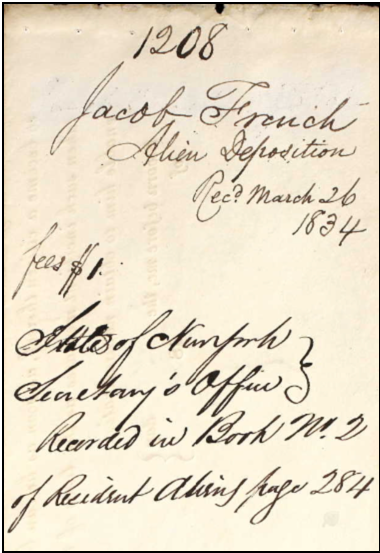 1208
Jacob French
Alien Deposition
Recd March 26
1834
fees $1.
State of New York
Secretary's Office
Recorded in Book No. 2
of Resident Aliens page 284